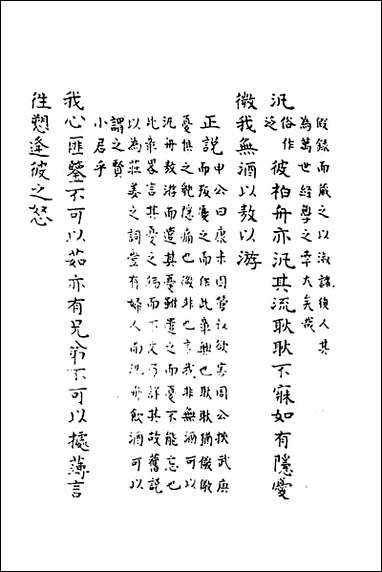 假錄而藏之以淑諸後人其
為萬世經學之幸大矣哉
汎俗作泛彼柏舟亦汎其流耿耿不寐如有隱憂
微我無酒以敖以游
正說申公曰康未因管叔欲害周公挾武庚
而叛憂之而作此 興也耿耿猶儆儆
憂惧之貌隱痛也微非也言我非無酒可以
汎舟敖游而遣其憂雖遣之而憂不能忘也
此章畧言其憂之 而下文乃詳其故舊說
以為莊姜之詞豈有婦人而汎舟飲酒可以
謂之賢
小君乎
我心匪鑒不可以茹亦有兄弟不可以據薄言
往愬逢彼之怒